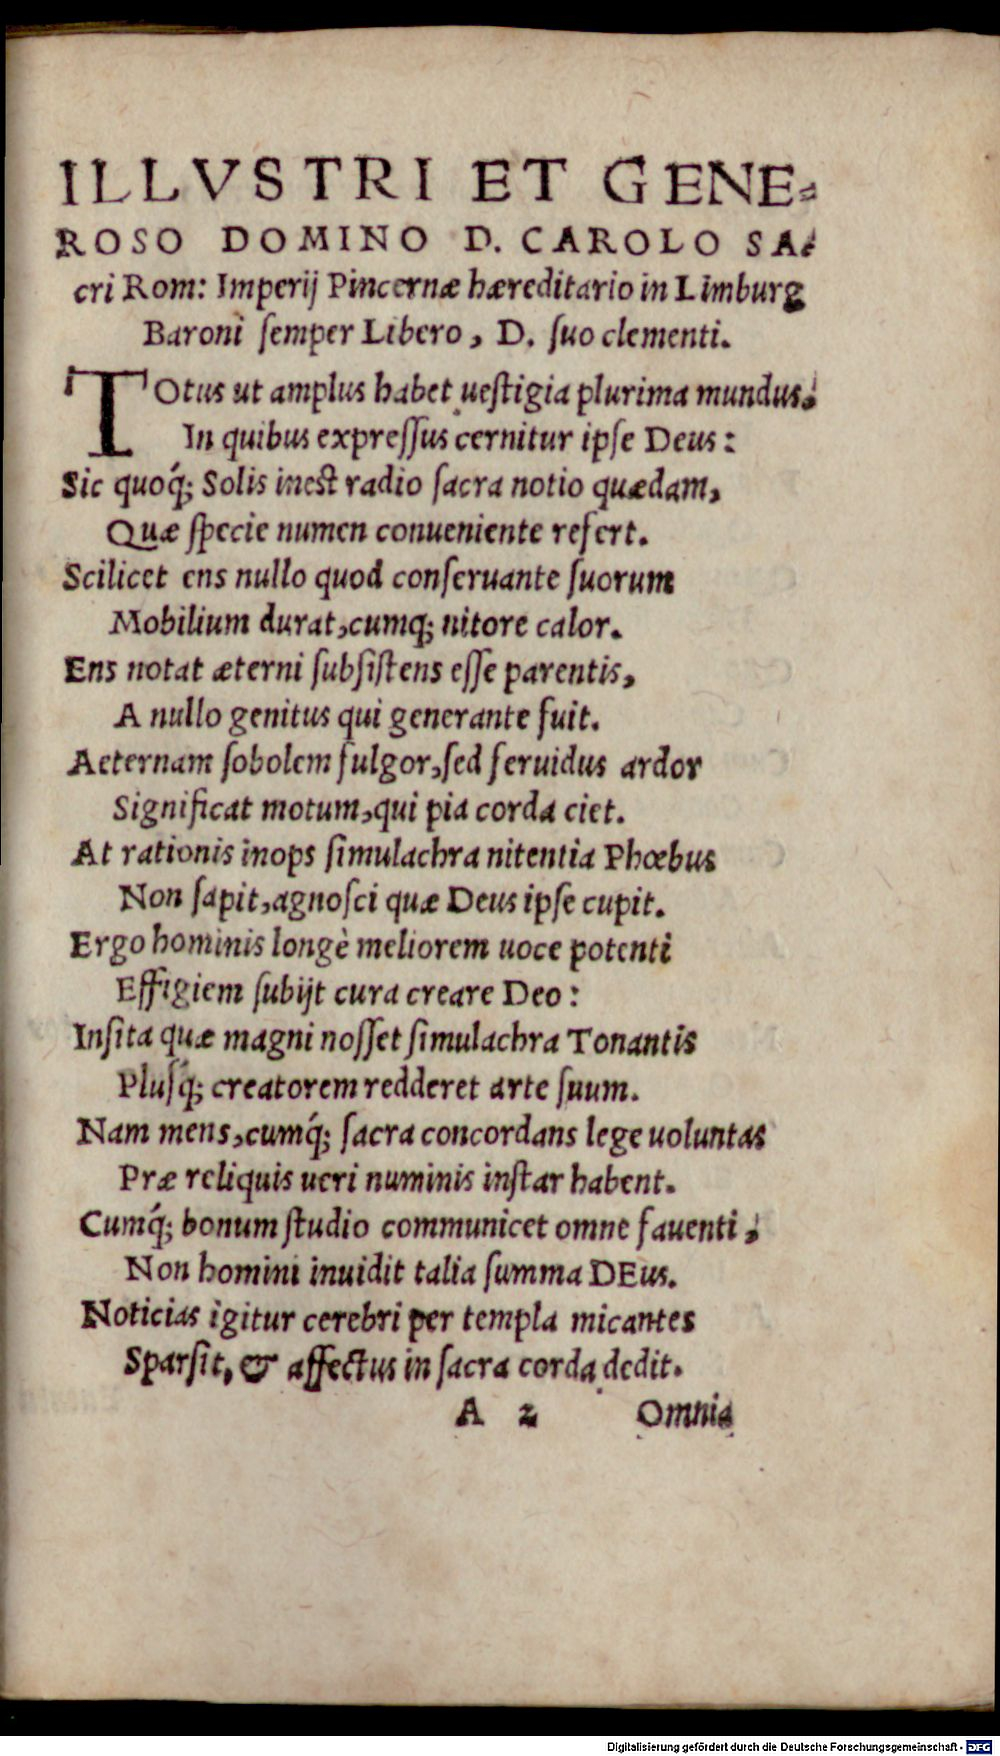 ILLVSTRI ET GENE-
ROSO DOMINO D. CAROLO SA-
cri Rom: Imperij Pincernæ hæreditario in Limburg
Baroni ſemper Libero, D. ſuo clementi.
TOtus ut amplus habet ueſtigia plurima mundus,
In quibus expreſſus cernitur ipſe Deus:
Sic quoq́; Solis ineſt radio ſacra notio quædam,
Quæ ſpecie numen conueniente refert.
Scilicet ens nullo quod conſeruante ſuorum
Mobilium durat, cumq; nitore calor.
Ens notat æterni ſubſiſtens eſſe parentis,
A nullo genitus qui generante fuit.
Aeternam ſobolem fulgor, ſed feruidus ardor
Significat motum, qui pia corda ciet.
At rationis inops ſimulachra nitentia Phœbus
Non ſapit, agnoſci quæ Deus ipſe cupit.
Ergo hominis longè meliorem uoce potenti
Effigiem ſubijt cura creare Deo:
Inſita quæ magni noſſet ſimulachra Tonantis
Pluſq́; creatorem redderet arte ſuum.
Nam mens, cumq́; ſacra concordans lege uoluntas
Præ reliquis ueri numinis inſtar habent.
Cumq́; bonum ſtudio communicet omne fauenti,
Non homini inuidit talia ſumma DEus.
Noticias igitur cerebri per templa micantes
Sparſit, & affectus in ſacra corda dedit.
A 2 Omnia
Digitalisierung gefördert durch die Deutsche Forschungsgemeinschaft - DFG